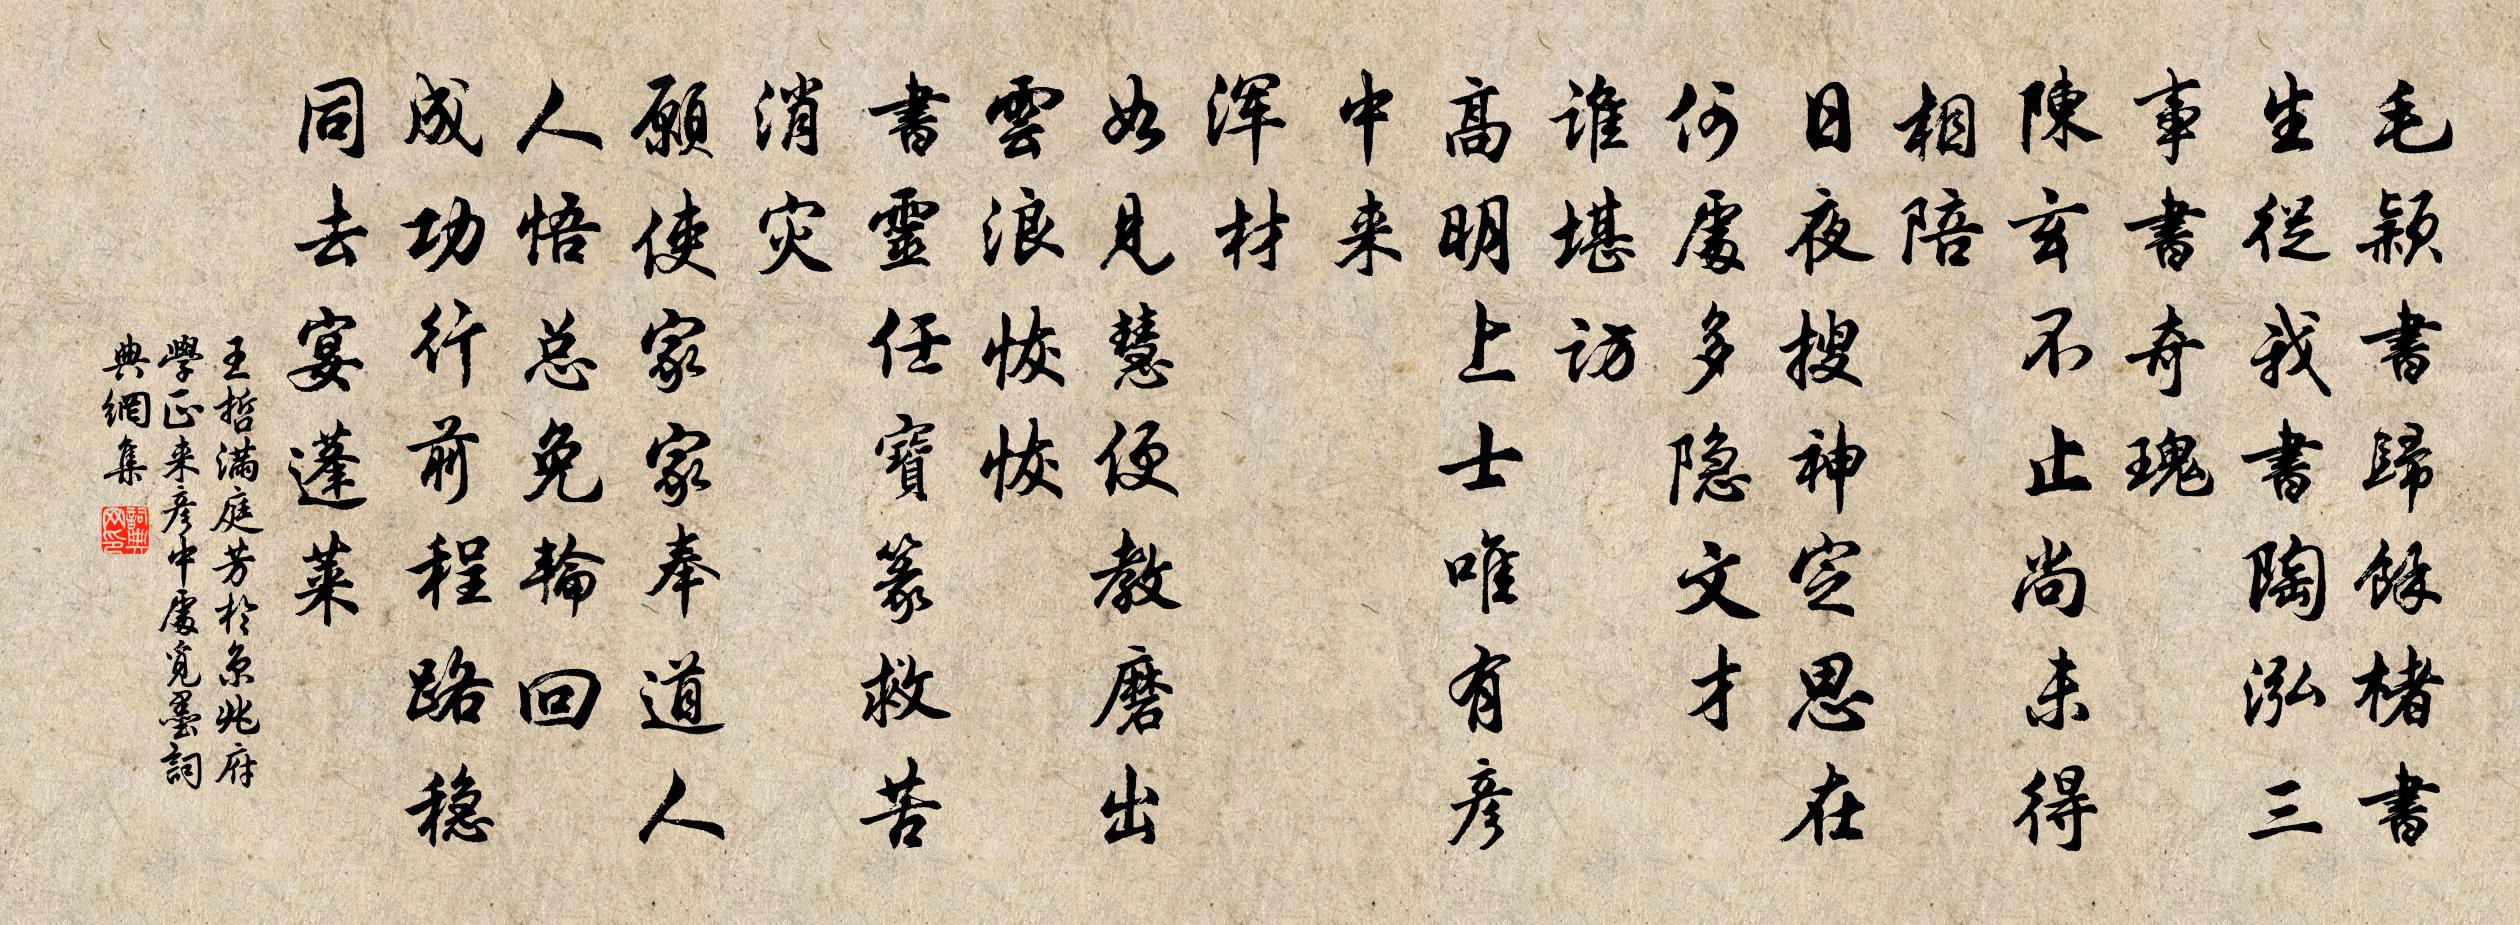 毛颖書歸餘楮書
生從我書陶泓三
事書奇瑰
陳玄不止尚未得
相陪
日夜搜神定思在
何處多隐文才
誰堪訪
高明上士唯有彦
中来
浑材
如見慧便教磨出
雲浪恢恢
書靈任寶篆救苦
消灾
願使家家奉道人
人悟总免輪回
成功行前程路穏
同去宴蓬莱
王哲满庭芳於京兆府
學正来彦中處覓墨詞
典網集